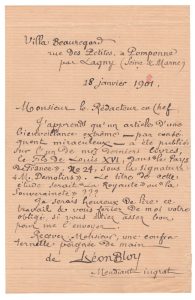 Villa Beauregard
rue des Petites, à Pomponne
par Lagny (Seine & Marne)
28 janvier 1901.
Monsieur le Rédacteur en chef
J'apprends qu'un article d'une
bienveillance extrême — par consé-
quent miraculeux — a été publié
sur l'un de mes derniers livres,
le Fils de Louis XVI, dans le Pays
de France, No 24, sous la signature
M. Demolins. Le titre de cette
étude serait La Royauté ou la
Souveraineté ???
Je serais heureux de lire ce
travail & je vous serais de moi votre
obligé si vous étiez assez bon
pour me l'envoyer.
Recevez Monsieur, une confra-
ternelle poignée de main
de Léon Bloy
Mendiant ingrat